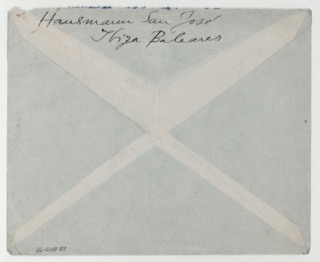 Hausmann San José
Ibiza Baleares